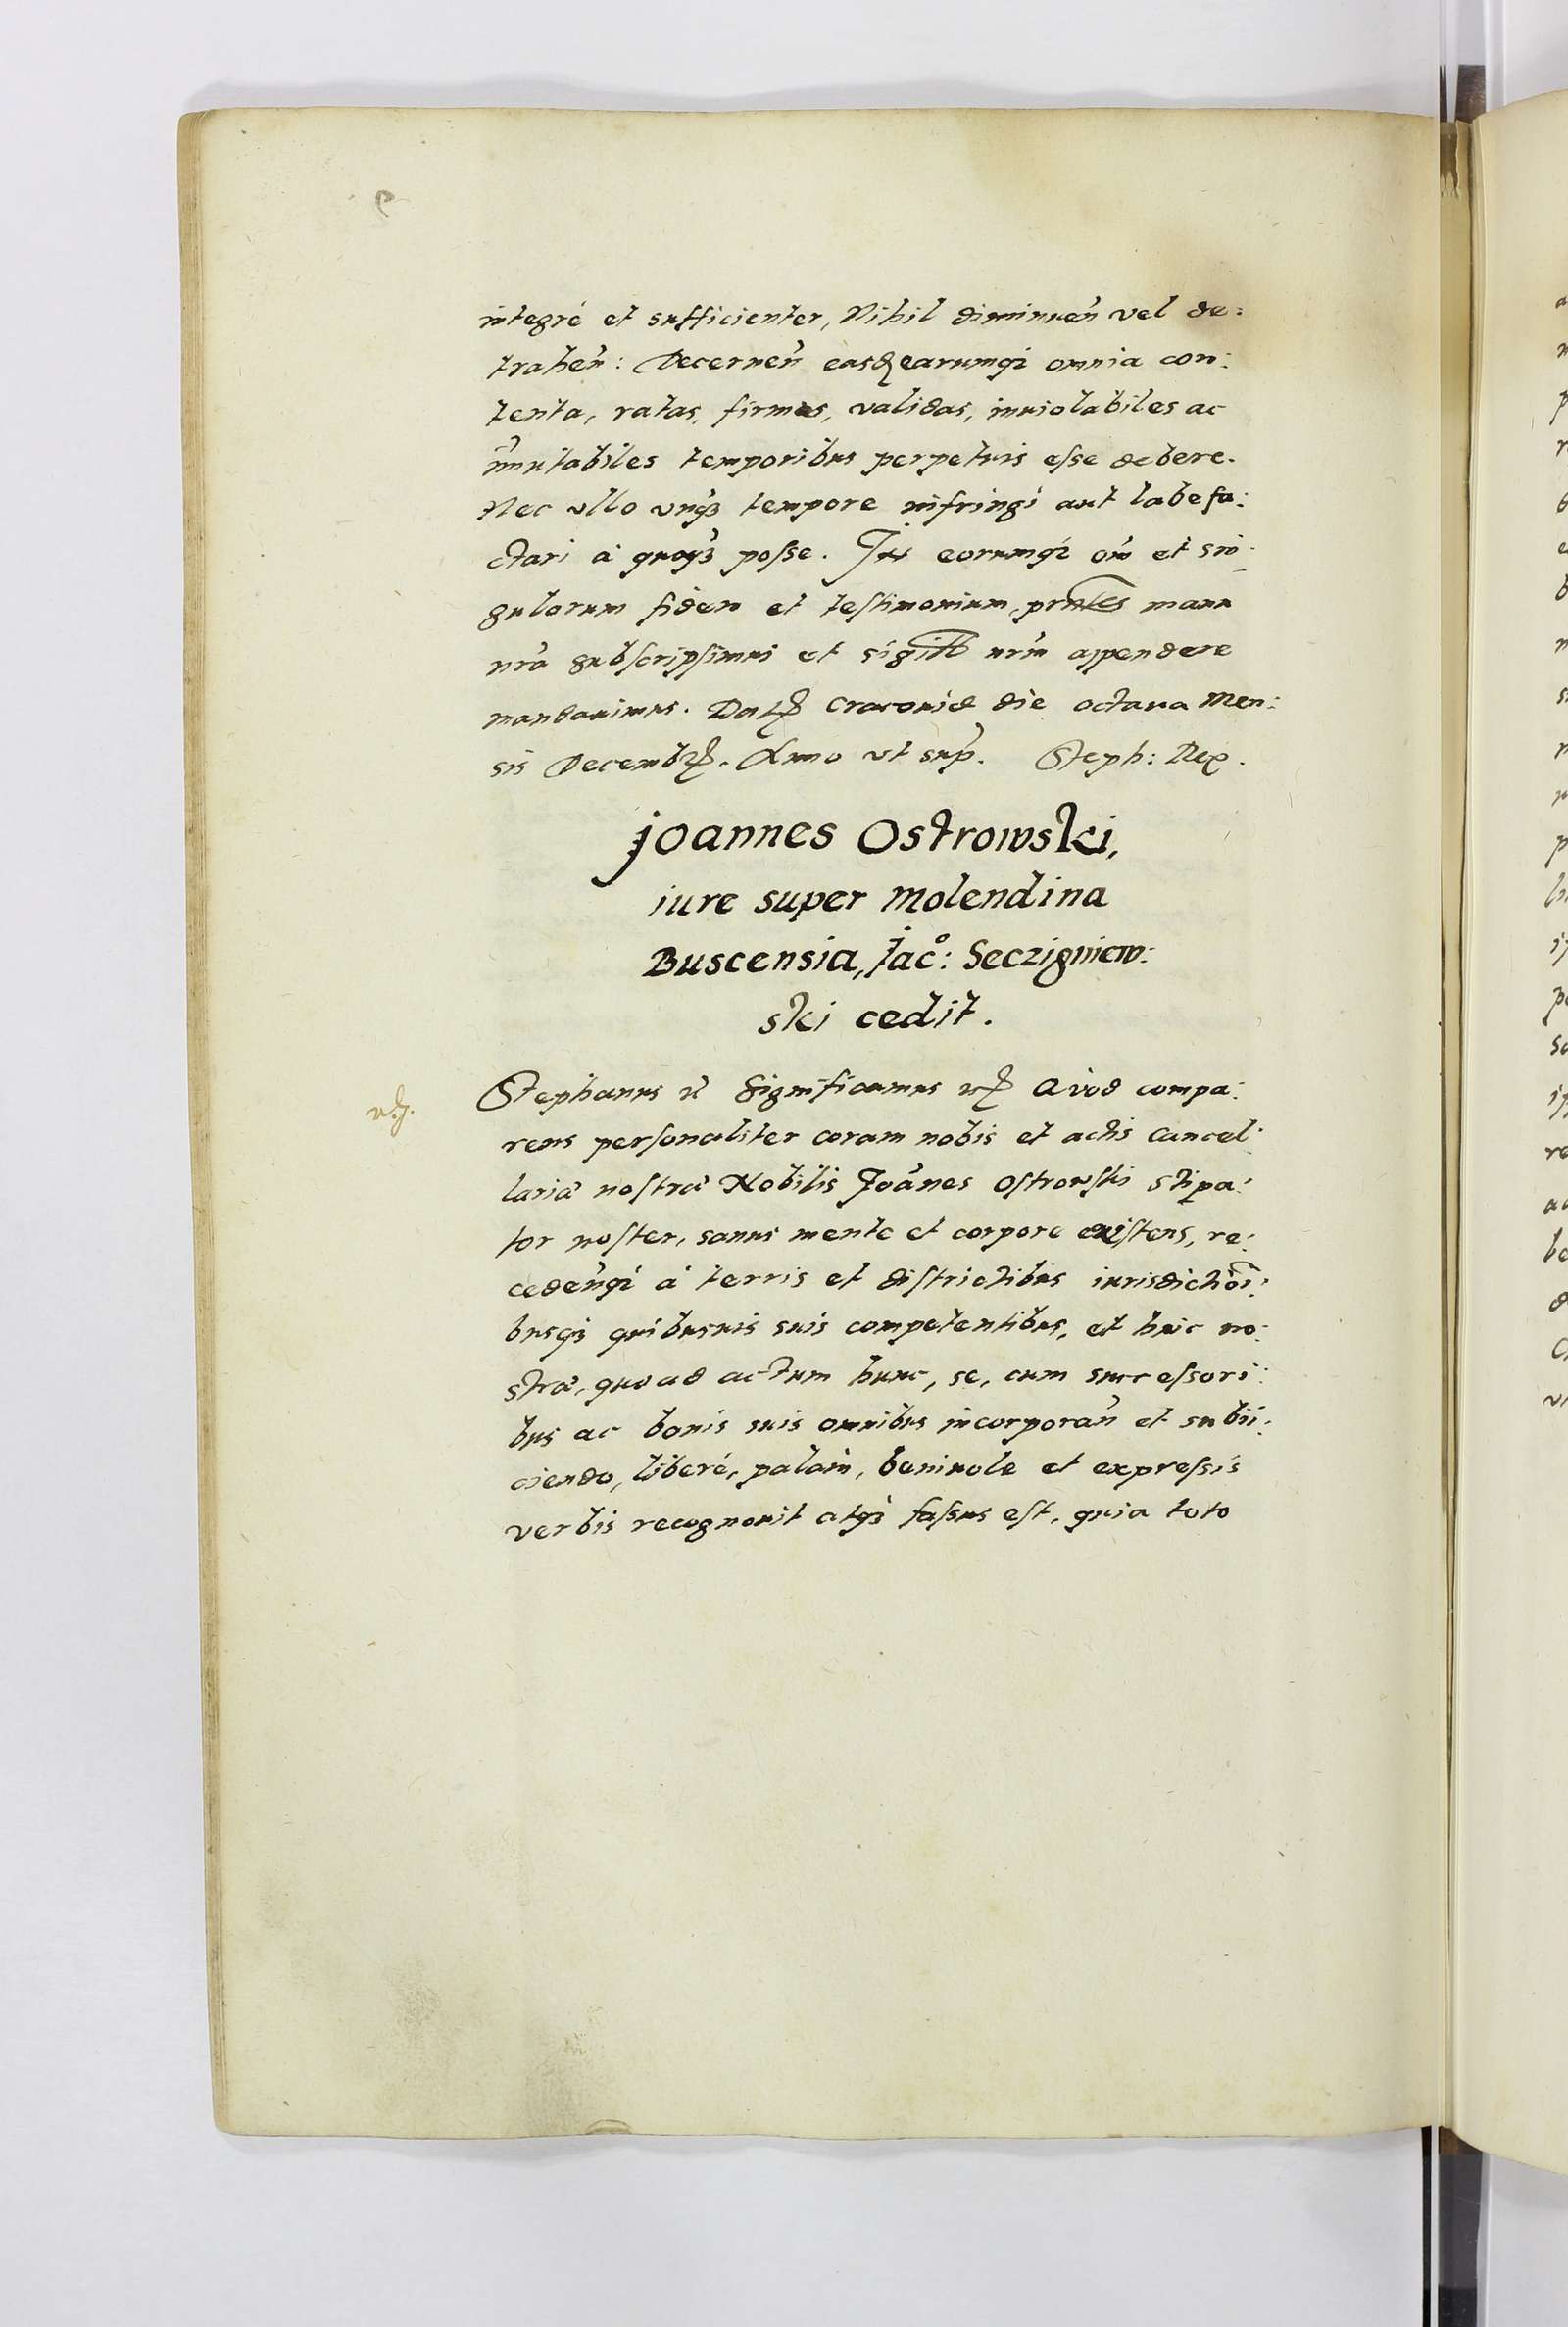 integré et sufficienter, Nihil diminuen̄ vel de:
trahen̄: Decernen̄ easdꝫ earumqꝫ omnia con:
tenta, ratas, firmas, validas, inuiolabiles ac
im̄utabiles temporibus perpetuis eſse debere.
Nec vllo vnqꝫ tempore infringi aut labefa:
ctari à quoqꝫ poſse. In eorumqꝫ oīm et sin:
gulorum fidem et teſtimonium, prn̄tes manu
nr̄a subſcripſimus et sigill nr̄m appendere
mandauimus. Datꝫ Cracouiæ die octaua Men:
sis Decembrꝫ. Anno vt sup̄. Steph: Rex.
Joannes Ostrowski,
iure super Molendina
Buscensia, Jac°: Seczigniew:
ski cedit.
Stephanus Significamus Quod compa:
rens perſonaliter coram nobis et actis Cancel:
lariæ noſtræ Nobilis Joānes Oſtrowſki Stipa:
tor noſter, sanus mente et corpore exiſtens, re:
ceden̄qꝫ à terris et diſtrictibus iurisdictiōi:
busqꝫ quibusuis suis competentibus, et huic no:
stræ, quoad actum hunc, se, cum succeſsori:
bus ac bonis suis omnibus incorporan̄ et subii:
ciendo, liberé, palàm, beniuole et expreſsis
verbis recognouit atqꝫ faſsus eſt, quia toto